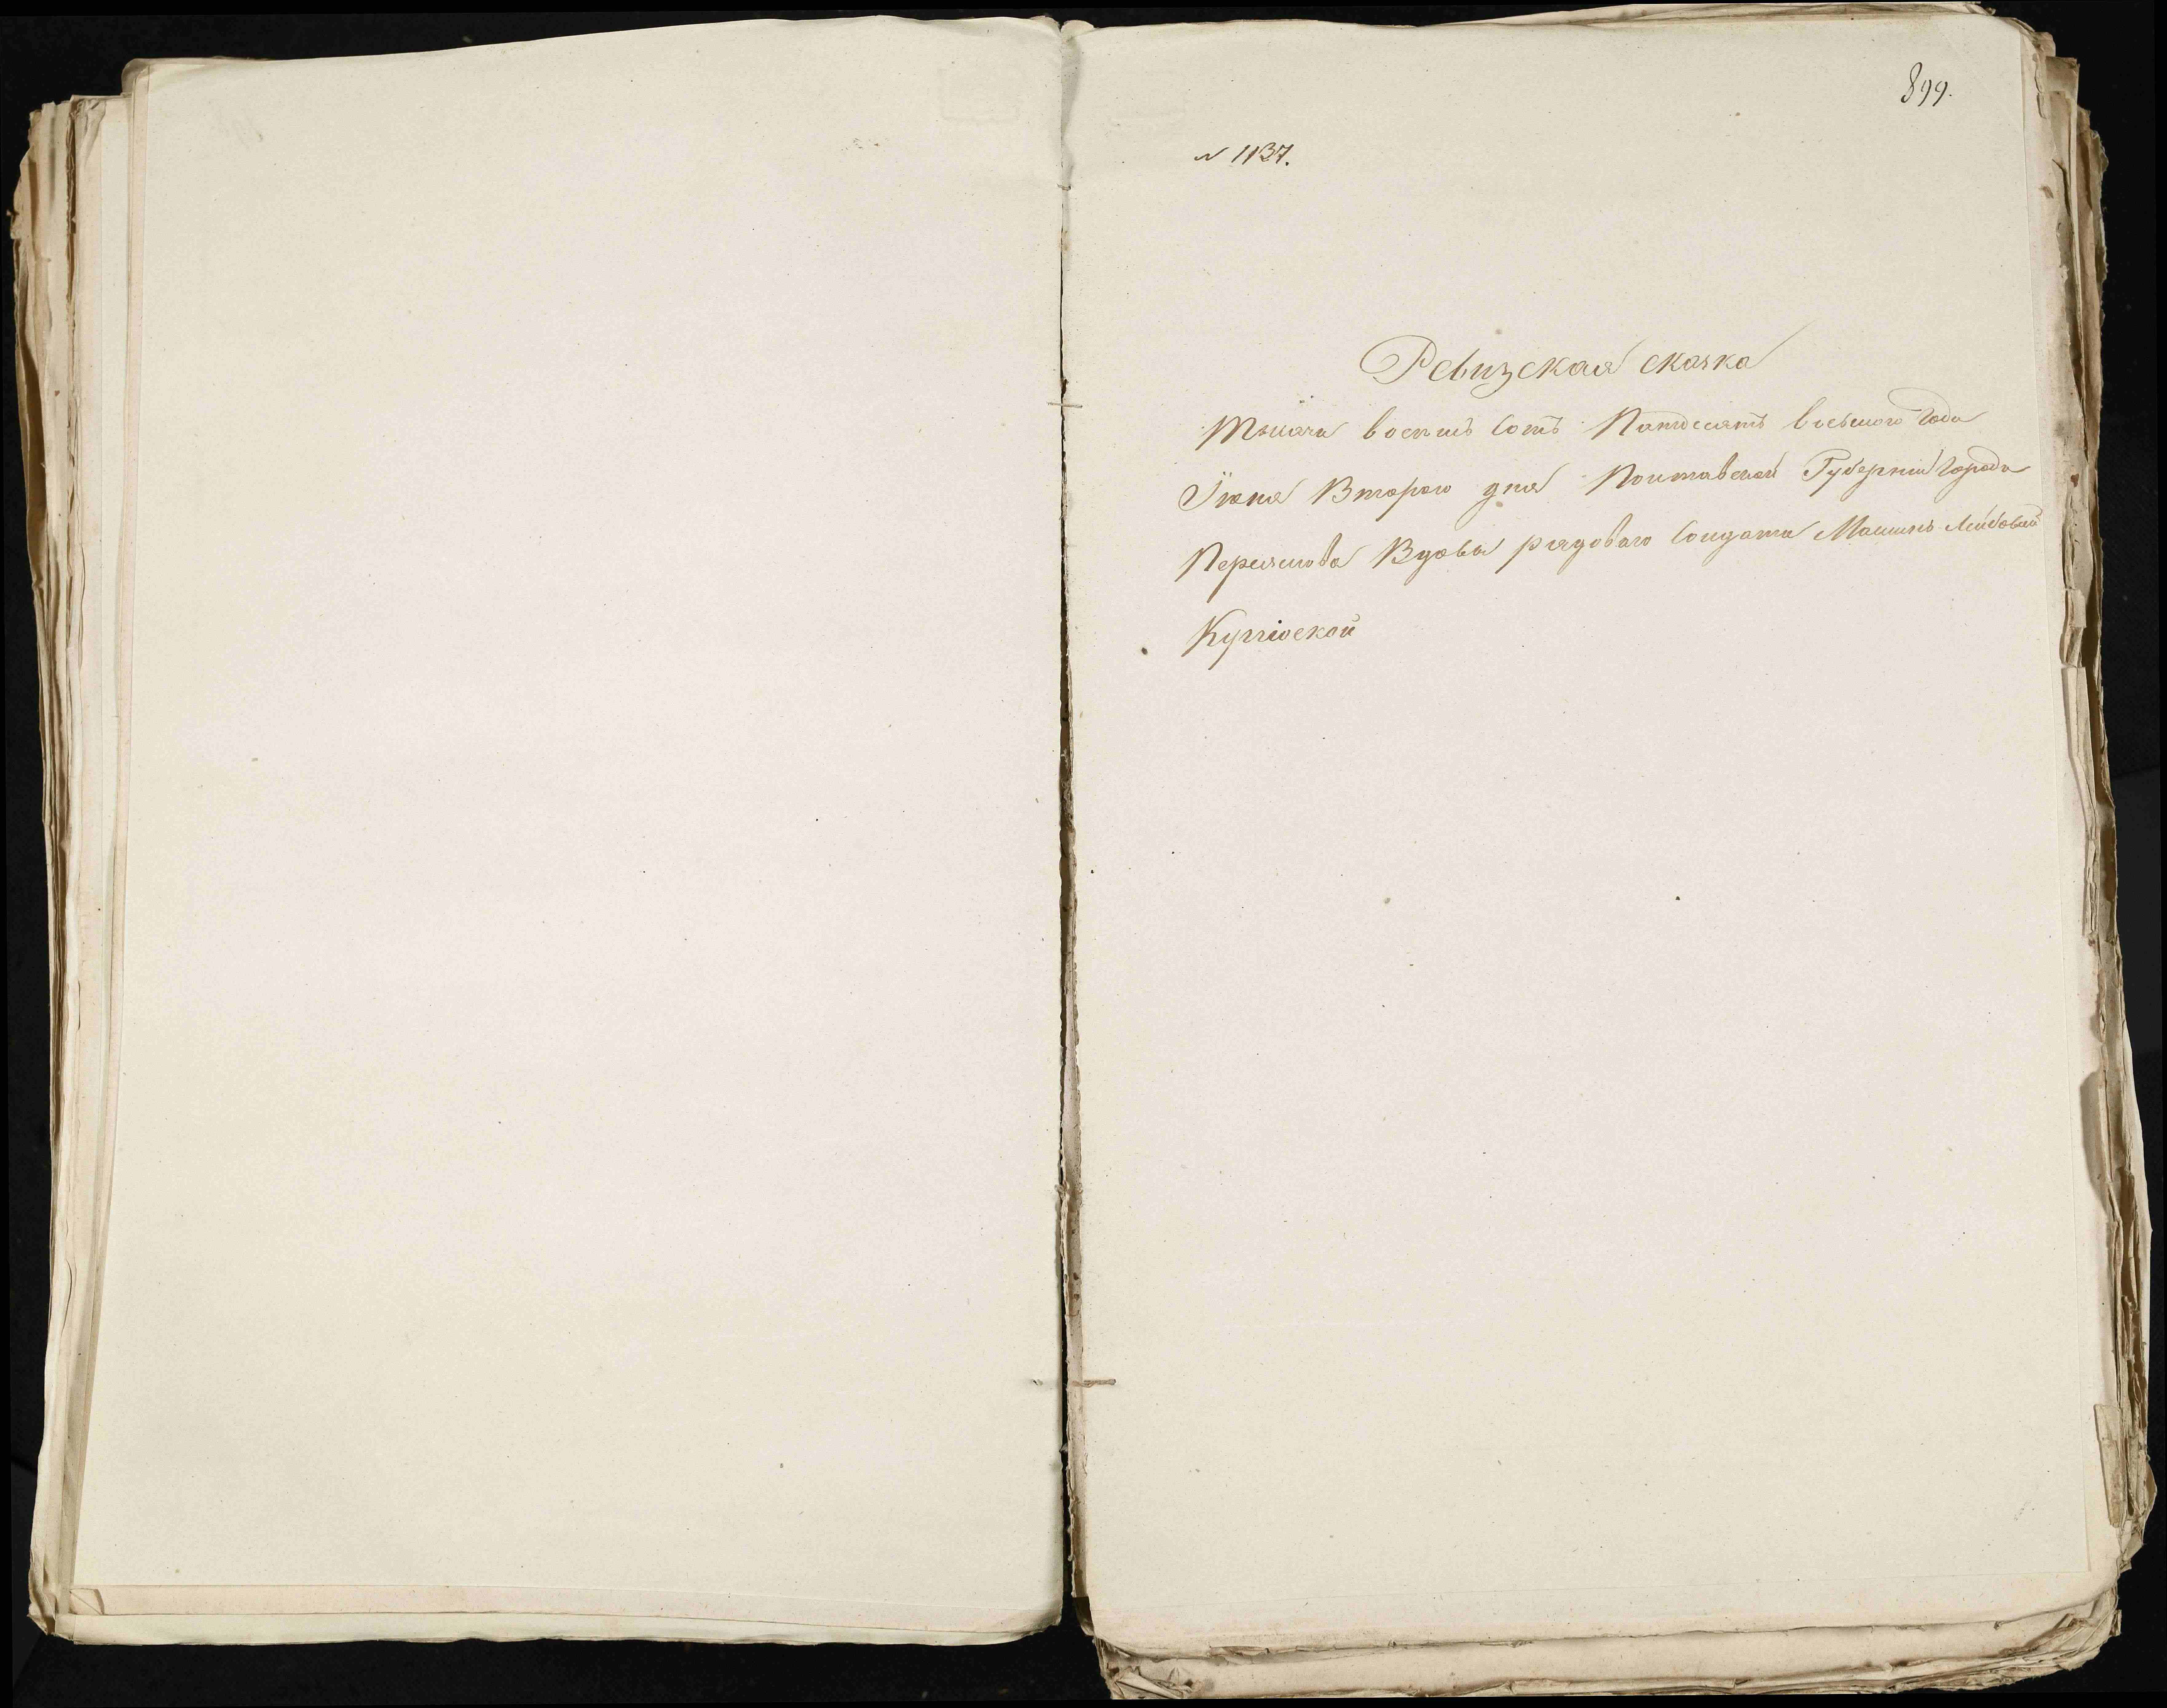 899.
№ 1137.
Ревизская сказка
Тысяча восемь сотъ Пятдесятъ восьмого Года
Іюня Втораго дня Полтавской Губерніи Города
Переяслова Вдовы рядоваго Солдата Лейбовой